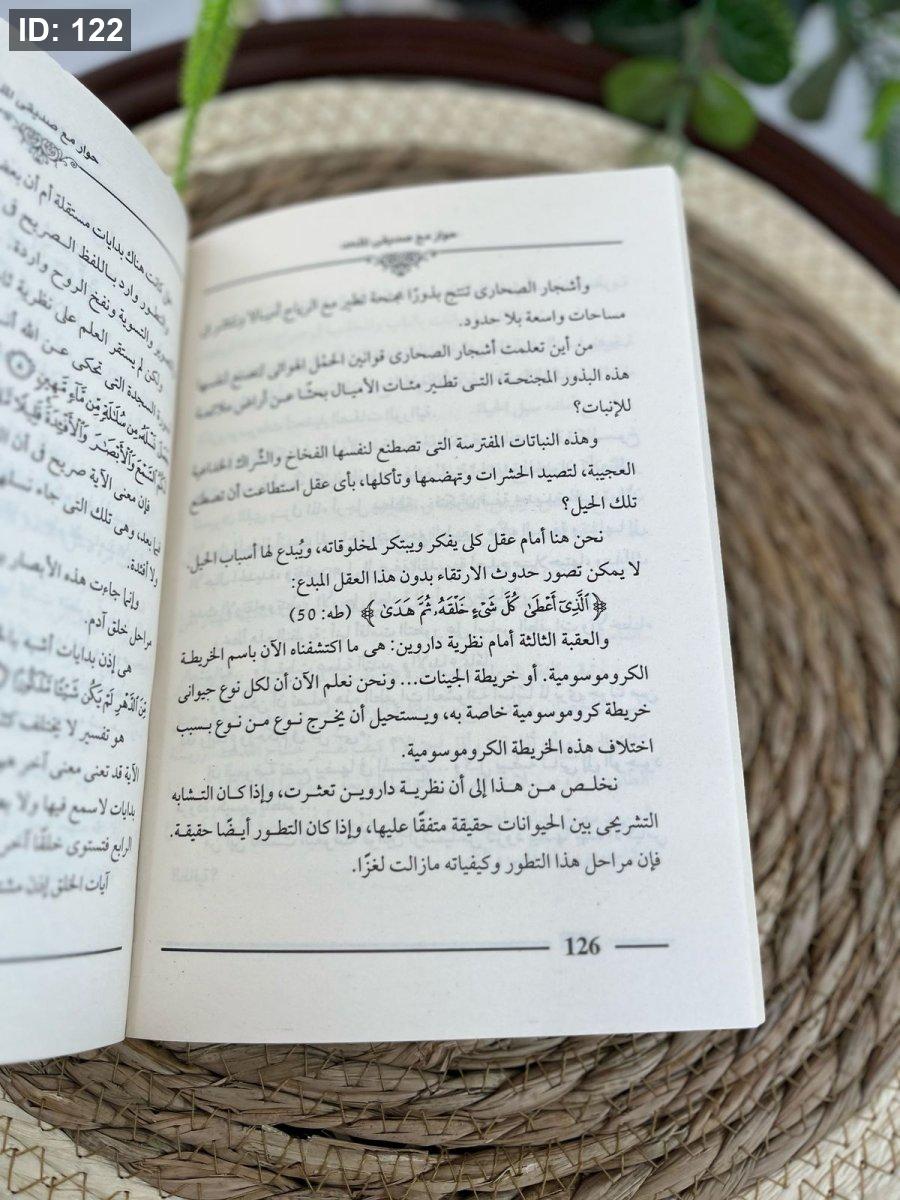 ID: 122
حوار مع صديقى الملحد
وأشجار الصحارى تنتج بذورًا مجنحة تطير مع الرياح أميالا وتنتشر فى
مساحات واسعة بلا حدود.
من أين تعلمت أشجار الصحارى قوانين الحمْل الهوائى لتصنع لنفسها
هذه البذور المجنحة، التى تطير مئات الأميال بحثًا عن أراض ملائمة
للإنبات؟
وهذه النباتات المفترسة التى تصطنع لنفسها الفخاخ والشّراك الخداعية
العجيبة، لتصيد الحشرات وتهضمها وتأكلها، بأى عقل استطاعت أن تصطنع
تلك الحيل؟
نحن هنا أمام عقل كلى يفكر ويبتكر لمخلوقاته، ويُبدع لها أسباب الحيل.
لا يمكن تصور حدوث الارتقاء بدون هذا العقل المبدع:
﴿ ٱلَّذِىٓ أَعْطَىٰ كُلَّ شَىْءٍ خَلْقَهُۥ ثُمَّ هَدَىٰ ﴾ (طه: 50)
والعقبة الثالثة أمام نظرية داروين: هى ما اكتشفناه الآن باسم الخريطة
الكروموسومية. أو خريطة الجينات... ونحن نعلم الآن أن لكل نوع حيوانى
خريطة كروموسومية خاصة به، ويستحيل أن يخرج نوع من نوع بسبب
اختلاف هذه الخريطة الكروموسومية.
نخلص من هذا إلى أن نظرية داروين تعثرت، وإذا كان التشابه
التشريحى بين الحيوانات حقيقة متفقًا عليها، وإذا كان التطور أيضًا حقيقة.
فإن مراحل هذا التطور وكيفياته مازالت لغزًا.
126
حوار مع صديقى
كانت هناك بدايات مستقلة أم أن بعض
والتطور وارد باللفظ الصريح فى
والتسوية ونفخ الروح واردة.
ولكن لم يستقر العلم على نظرية
السجدة التى تحكى عن الله
نَسْلَهُۥ مِن سُلَٰلَةٍ مِّن مَّآءٍ مَّهِينٍ
ٱلسَّمْعَ وَٱلْأَبْصَٰرَ وَٱلْأَفْـِٔدَةَ قَلِيلًا
فإن معنى الآية صريح فى أن
بعد، وهى تلك التى جاء
ولا أفئدة.
وإنما جاءت هذه الأبصار
مراحل خلق آدم.
هى إذن بدايات أشبه
ٱلدَّهْرِ لَمْ يَكُن شَيْـًٔا مَّذْكُورًا
هو تفسير لا يختلف
الآية قد تعنى معنى آخر هو
بدايات لا سمع فيها ولا
الرابع فتستوى خلقًا آخر
آيات الخلق إذن